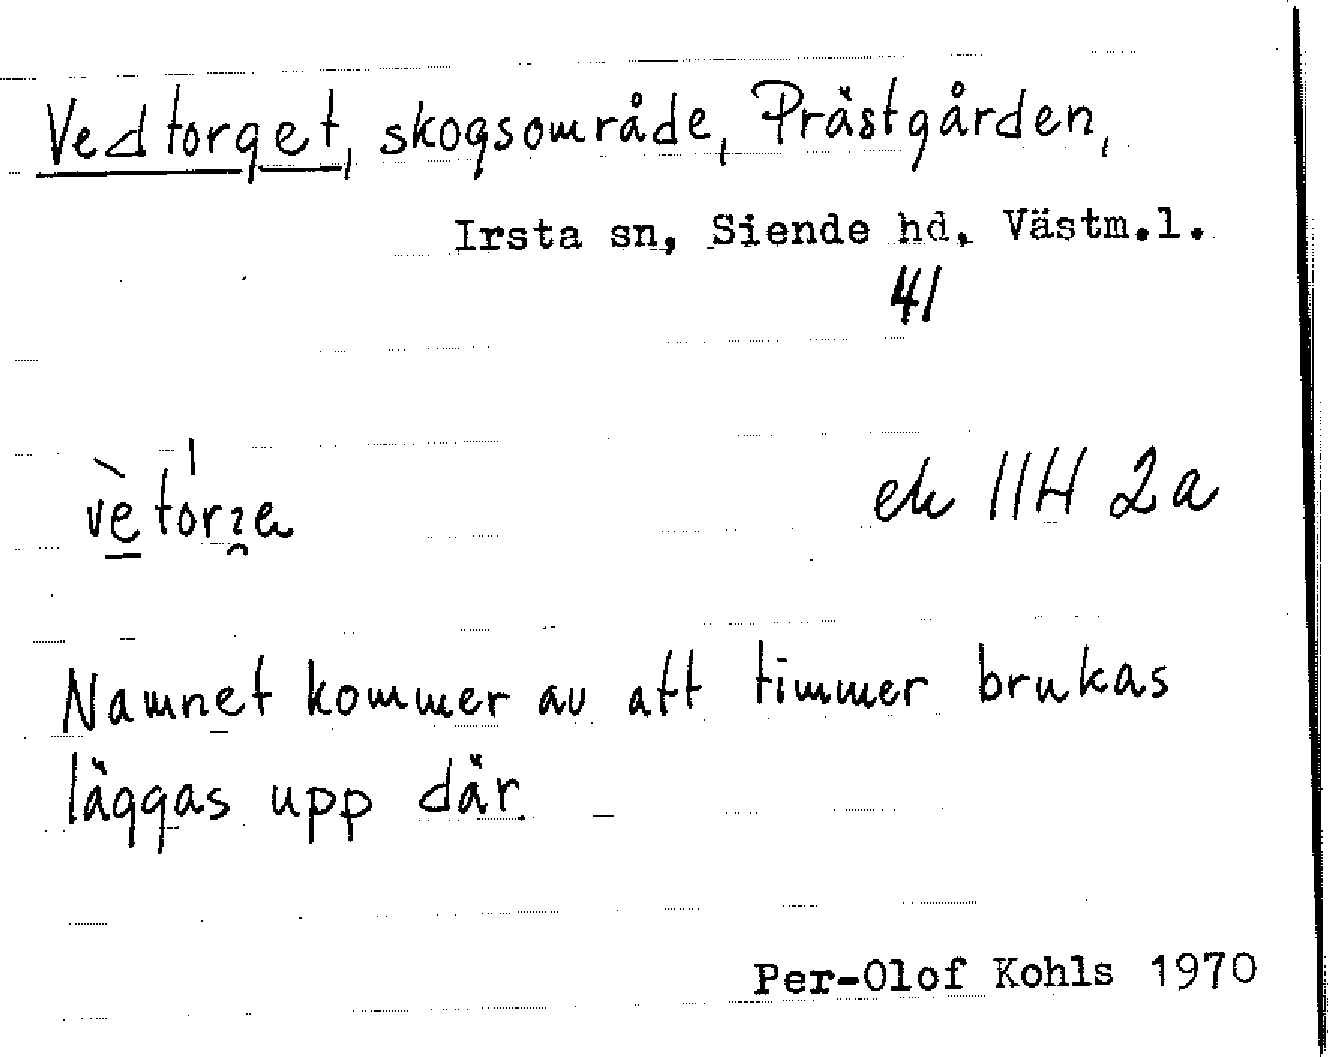 Vedtorget, skogsområde, Prästgården,
Irsta sn, Siende hd, Västm.l.
41
ek 11H 2a
Namnet kommer av att timmer brukas
läggas upp där.
Per-Olof Kohls 1970